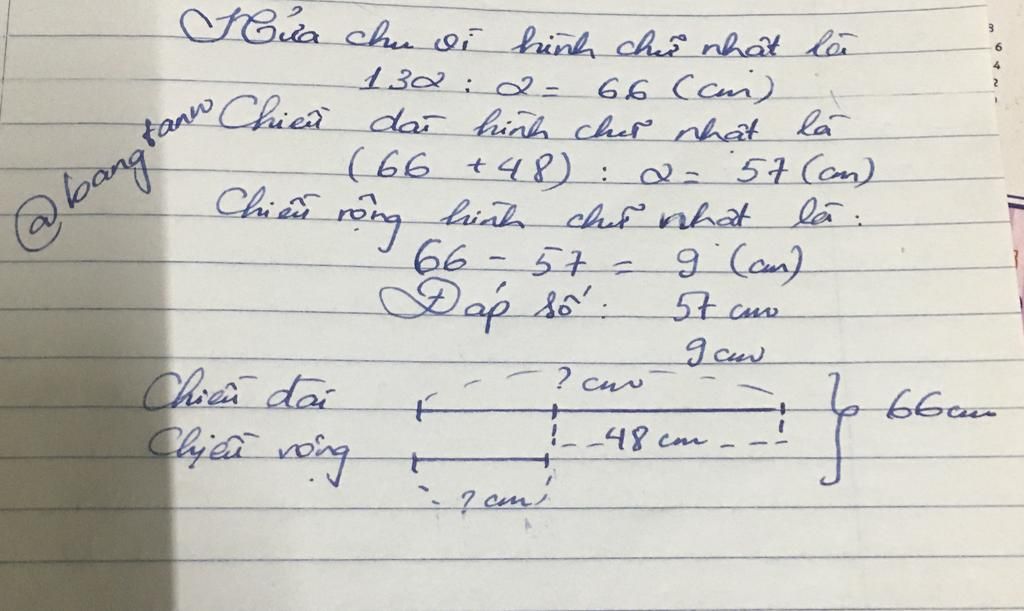 Nửa chu vi hình chữ nhật là
132 : 2 = 66 (cm)
Chiều dài hình chữ nhật là
(66 + 48) : 2 = 57 (cm)
Chiều rộng hình chữ nhật là:
66 - 57 = 9 (cm)
Đáp số: 57 cm
9 cm
@bangtanw
Chiều dài ? cm
48 cm
66 cm
Chiều rộng
? cm
8
6
4
2